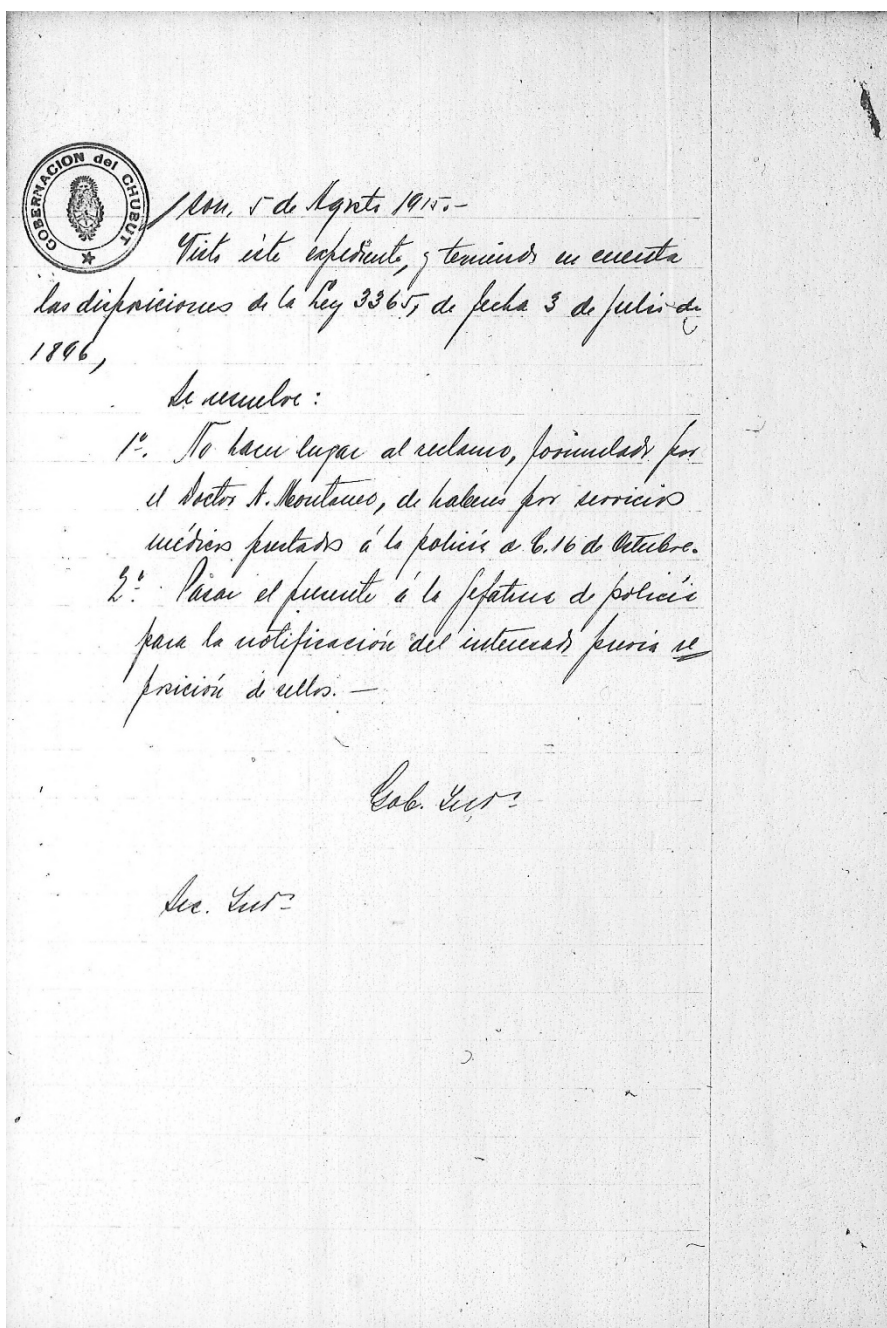 GOBERNACION del CHUBUT
son, 5 de Agosto 1915.-
Visto éste expediente, y teniendo en cuenta
las disposiciones de la Ley 3365, de fecha 3 de Julio de
1896,
Se resuelve:
1º. No hacer lugar al reclamo, formulado por
el Doctor A. Montaneo, de haberes por servicios
médicos prestados á la policía de C. 16 de Octubre.
2º. Pasar el presente á la Jefatura de policía
para la notificación del interesado previa re
posición de sellos.-
Gob.
Sec.